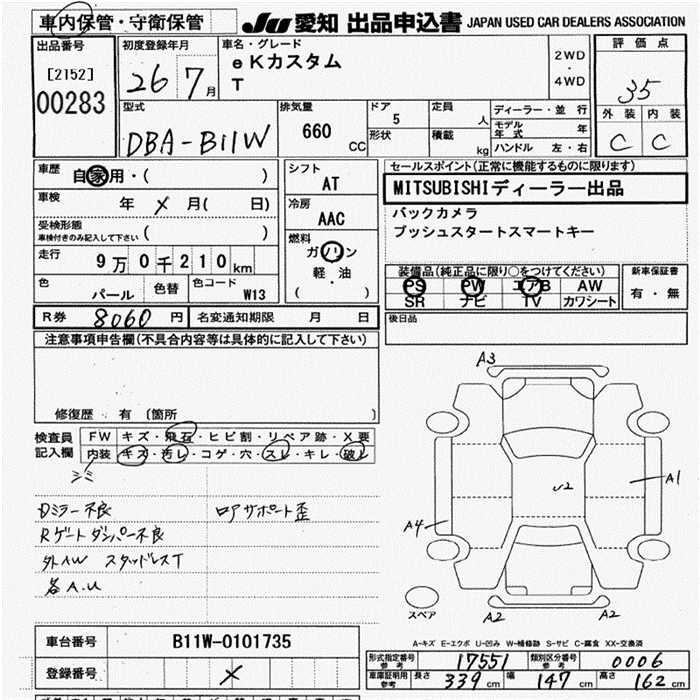 車内保管・守衛保管 JU 愛知 出品申込書 JAPAN USED CAR DEALERS ASSOCIATION
出品番号 [2152] 00283
初度登録年月 26 7月
車名・グレード eKカスタム T
2WD・4WD
評価点 35
外装 内装
C C
型式 DBA-B11W
排気量 660 CC
ドア 5
形状
定員 人
積載 kg
ディーラー・並行
モデル年式 年
ハンドル 左・右
車歴 自家用・( )
車検 年 メ 月( 日)
受検形態 車検付きのみ記入して下さい ( )
走行 9万0千210km
色 パール 色替 色コード W13
シフト AT
冷房 AAC
燃料 ガソリン 軽・油 ( )
セールスポイント(正常に機能するものに限ります)
MITSUBISHIディーラー出品
バックカメラ
プッシュスタートスマートキー
装備品(純正品に限り○をつけてください)
PS PW エアB AW
SR ナビ TV カワシート
新車保証書 有・無
後日品
R券 8060円 名変通知期限 月 日
注意事項申告欄(不具合内容等は具体的に記入して下さい)
修復歴 有 〔箇所 〕
検査員記入欄
FW キズ・飛石・ヒビ割・リペア跡・X要
内装 キズ・汚レ・コゲ・穴・スレ・キレ・破レ
Dミラー不良 ロアサポート歪
Rゲートダンパー不良
外AW スタッドレスT
各A.U
A3
A1
U2
A4
A2 A2
スペア
A-キズ E-エクボ U-凹み W-補修跡 S-サビ C-腐食 XX-交換済
車台番号 B11W-0101735
登録番号 メ
形式指定番号 参考 17551 類別区分番号 参考 0006
車庫証明用 参考 長さ 339cm 幅 147cm 高さ 162cm